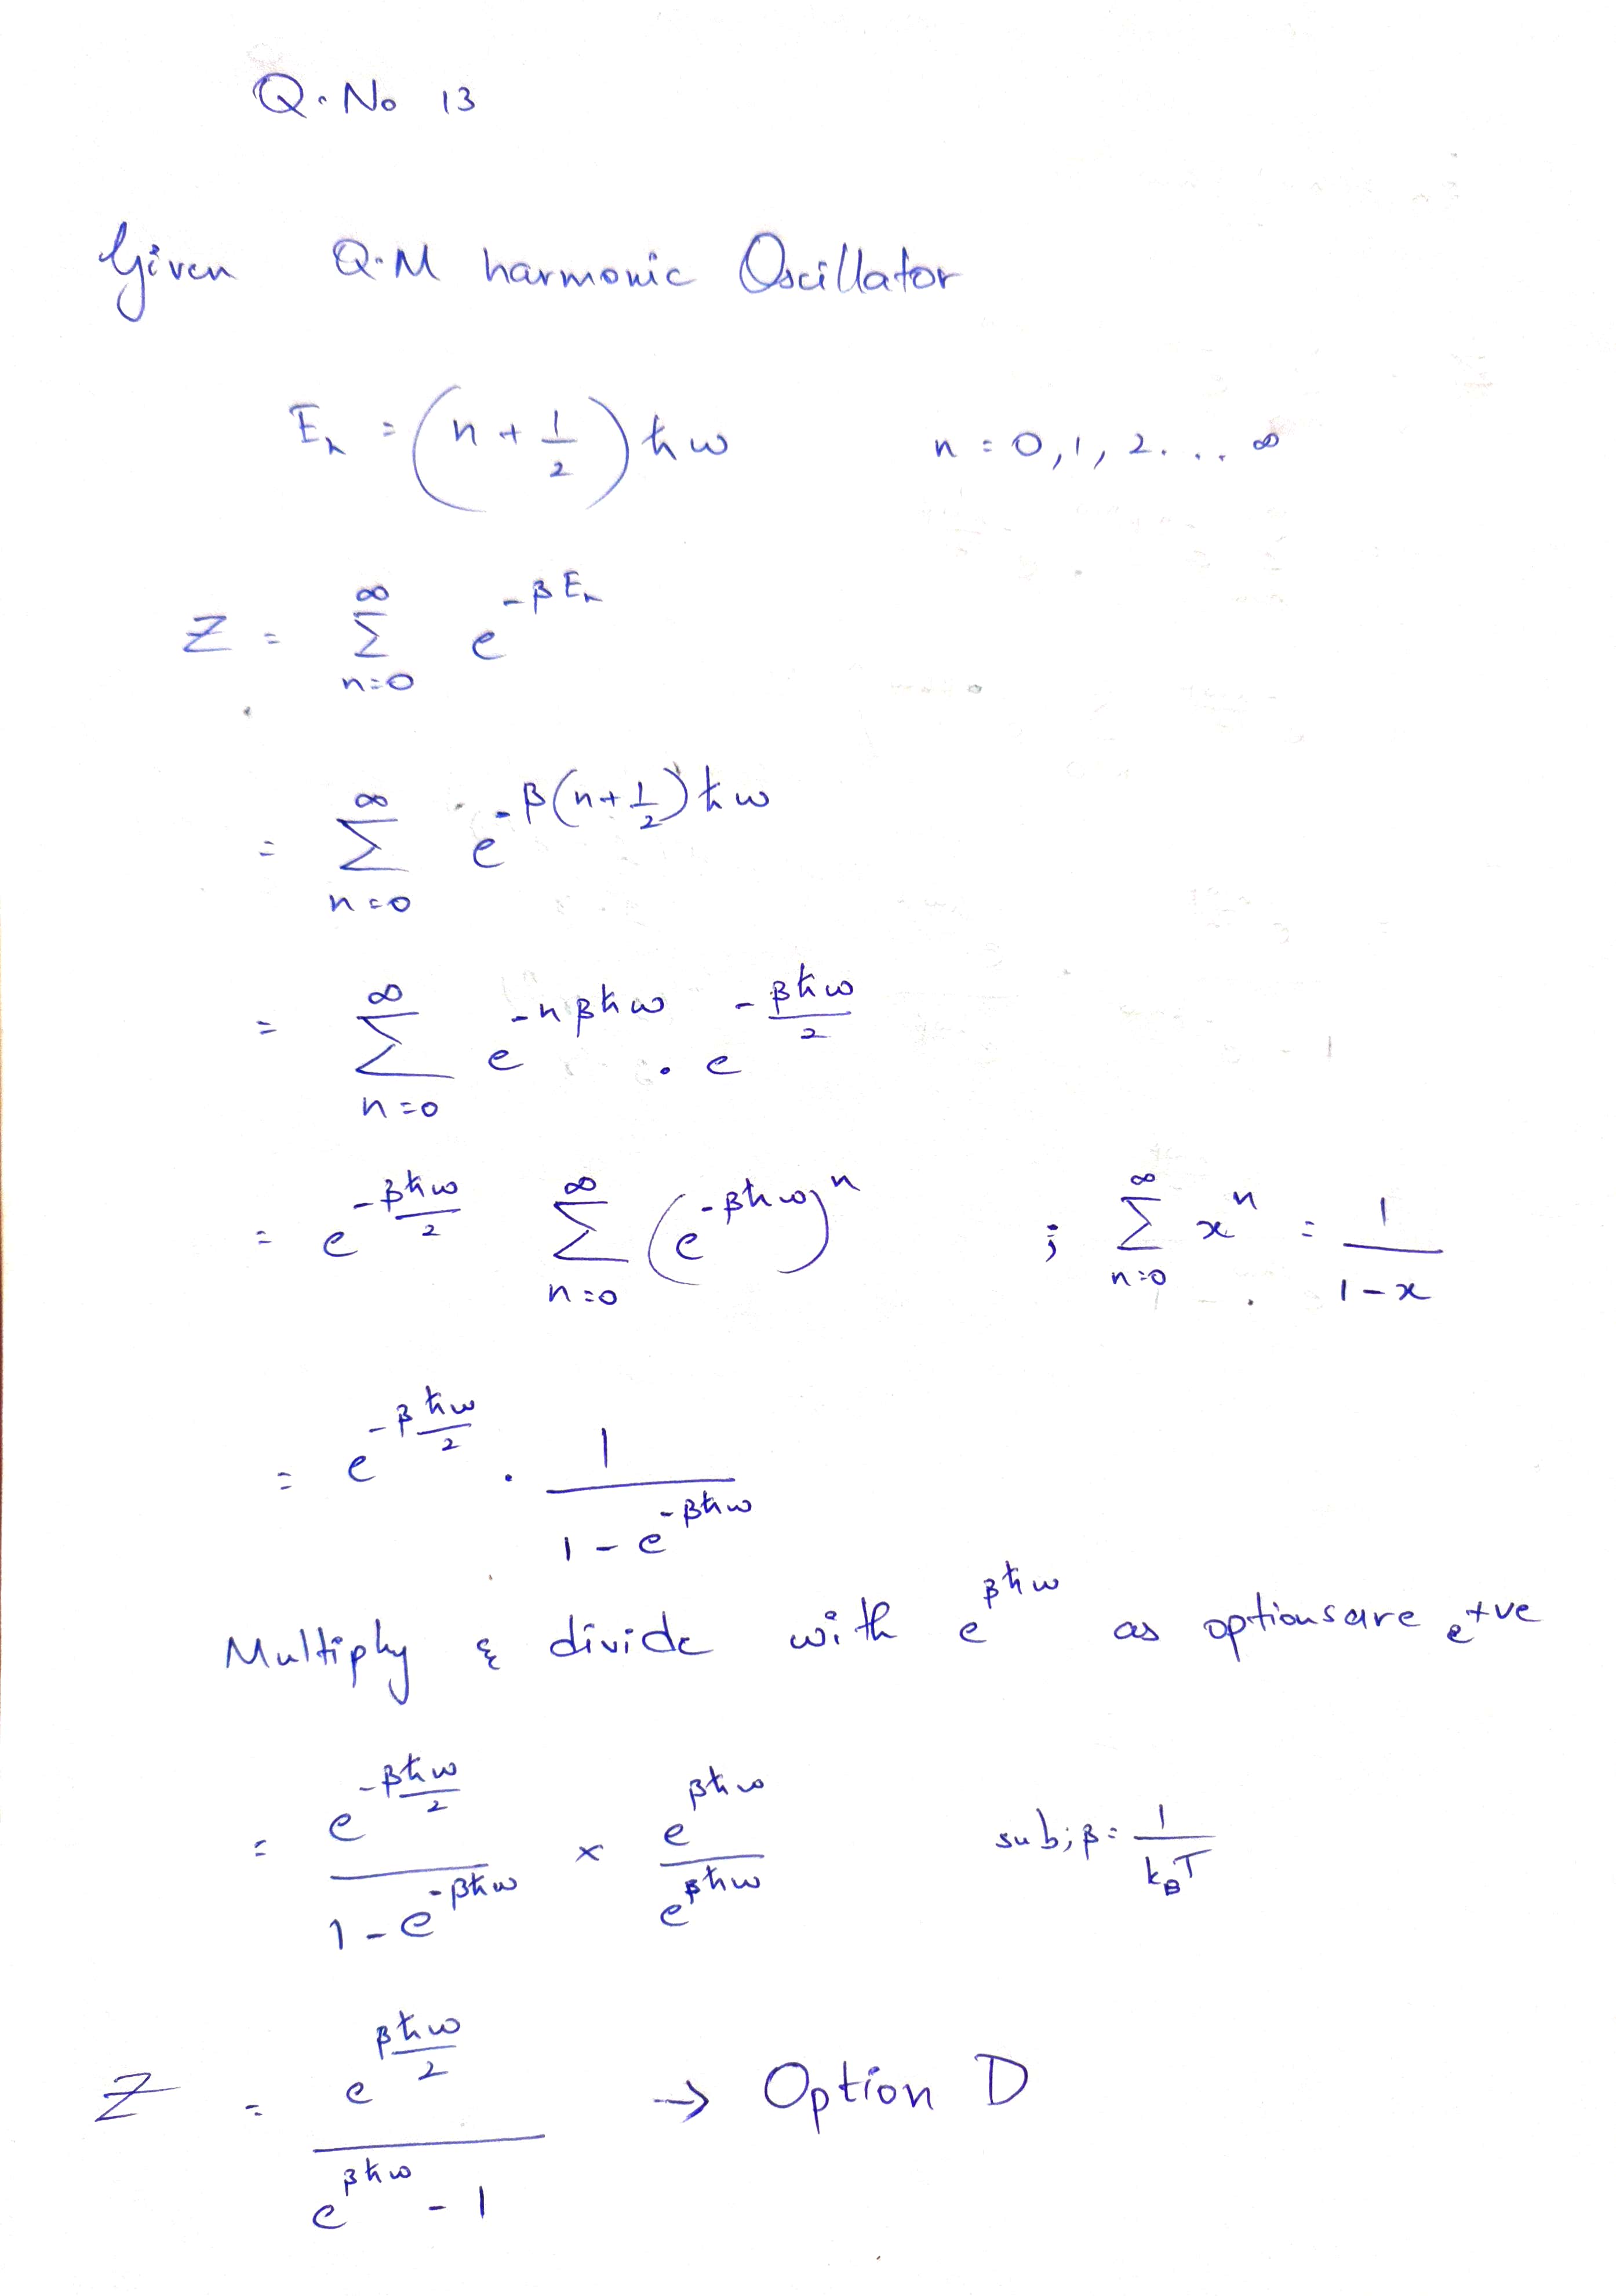 Q. No 13
Given Q.M harmonic Oscillator
Eₙ = (n + 1/2) ħω n = 0, 1, 2 . . . ∞
Z = Σ_{n=0}^{∞} e^{-βEₙ}
= Σ_{n=0}^{∞} e^{-β(n+1/2)ħω}
= Σ_{n=0}^{∞} e^{-nβħω} . e^{-βħω/2}
= e^{-βħω/2} Σ_{n=0}^{∞} (e^{-βħω})^n ; Σ_{n=0}^{∞} x^n = 1/(1-x)
= e^{-βħω/2} . 1/(1 - e^{-βħω})
Multiply & divide with e^{βħω} as options are e^{+ve}
= e^{-βħω/2}/(1 - e^{-βħω}) × e^{βħω}/e^{βħω} sub; β = 1/(k_B T)
Z = e^{βħω/2}/(e^{βħω} - 1) → Option D